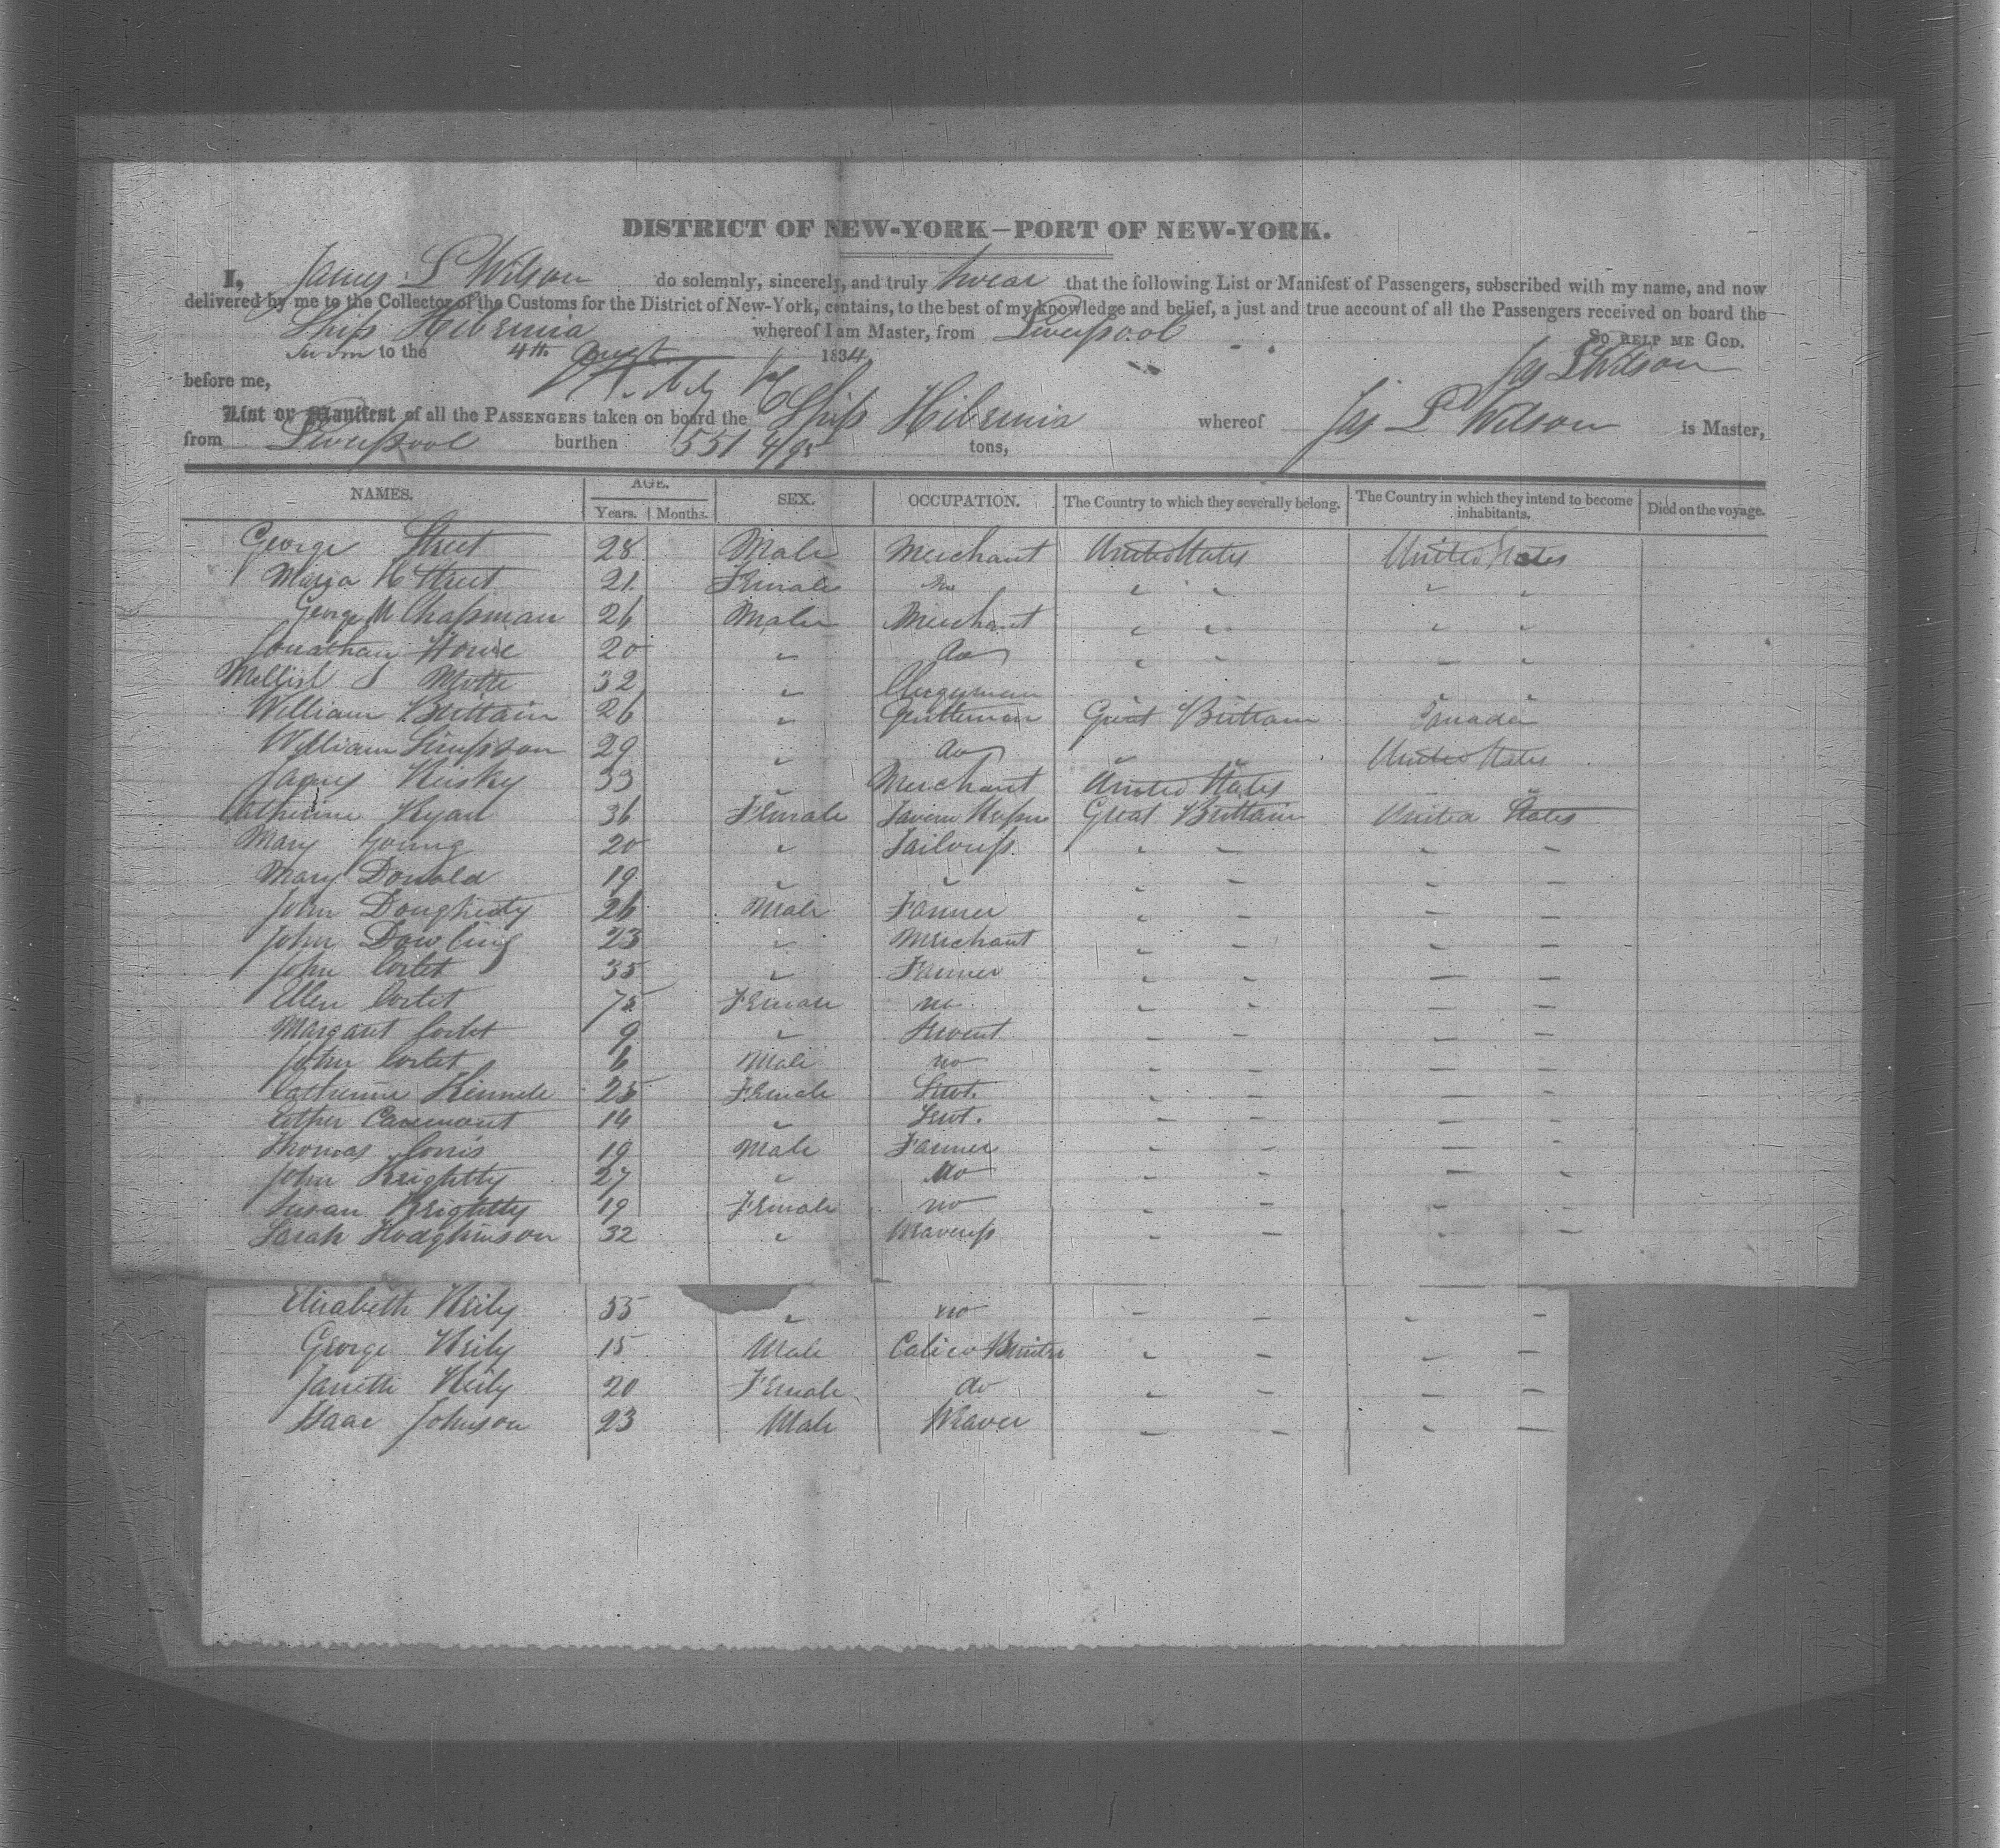 DISTRICT OF NEW-YORK—PORT OF NEW-YORK.
I, James L Wilson do solemnly, sincerely, and truly swear that the following List or Manifest of Passengers, subscribed with my name, and now
delivered by me to the Collector of the Customs for the District of New-York, contains, to the best of my knowledge and belief, a just and true account of all the Passengers received on board the
Ship Hibernia whereof I am Master, from Liverpool
So HELP ME GOD.
Sworn to the 4th Augt 1834
Jas L Wilson
before me,
List or Manifest of all the PASSENGERS taken on board the Ship Hibernia whereof Jas L Wilson is Master,
from Liverpool burthen 551 4/95 tons,
NAMES. AGE. SEX. OCCUPATION. The Country to which they severally belong. The Country in which they intend to become inhabitants. Died on the voyage.
Years. Months.
George Street 28 Male Merchant United States United States
Maria H Street 21 Female no " " " "
George M Chapman 26 Male Merchant " " " "
Jonathan Howe 20 " do " " " "
Mellish I Motte 32 " Clergyman " "
William Brittain 26 " Gentleman Great Brittain Canada
William Simpson 29 " do " " United States
James Kusky 33 " Merchant United States " "
Catherine Ryan 36 Female Tavern Keeper Great Brittain United States
Mary Young 20 " Tailoress " " " "
Mary Donald 19 " " " " " "
John Dougherty 26 Male Farmer " " " "
John Dowling 23 " Merchant " " " "
John Cortet 35 " Farmer " " " "
Ellen Cortet 75 Female no " " " "
Margaret Cortet 9 " Servent " " " "
John Cortet 6 Male no " " " "
Catherine Kinnele 25 Female Servt. " " " "
Esther 14 " Servt. " " " "
Thomas Corris 19 Male Farmer " " " "
John Keightty 27 " do " " " "
Susan Keightty 19 Female no " " " "
Sarah Hodgkinson 32 " Weaveress " " " "
Elizabeth Keily 55 " no " " " "
George Keily 15 Male Calico Printer " " " "
Janett Keily 20 Female do " " " "
Isaac Johnson 23 Male Weaver " " " "